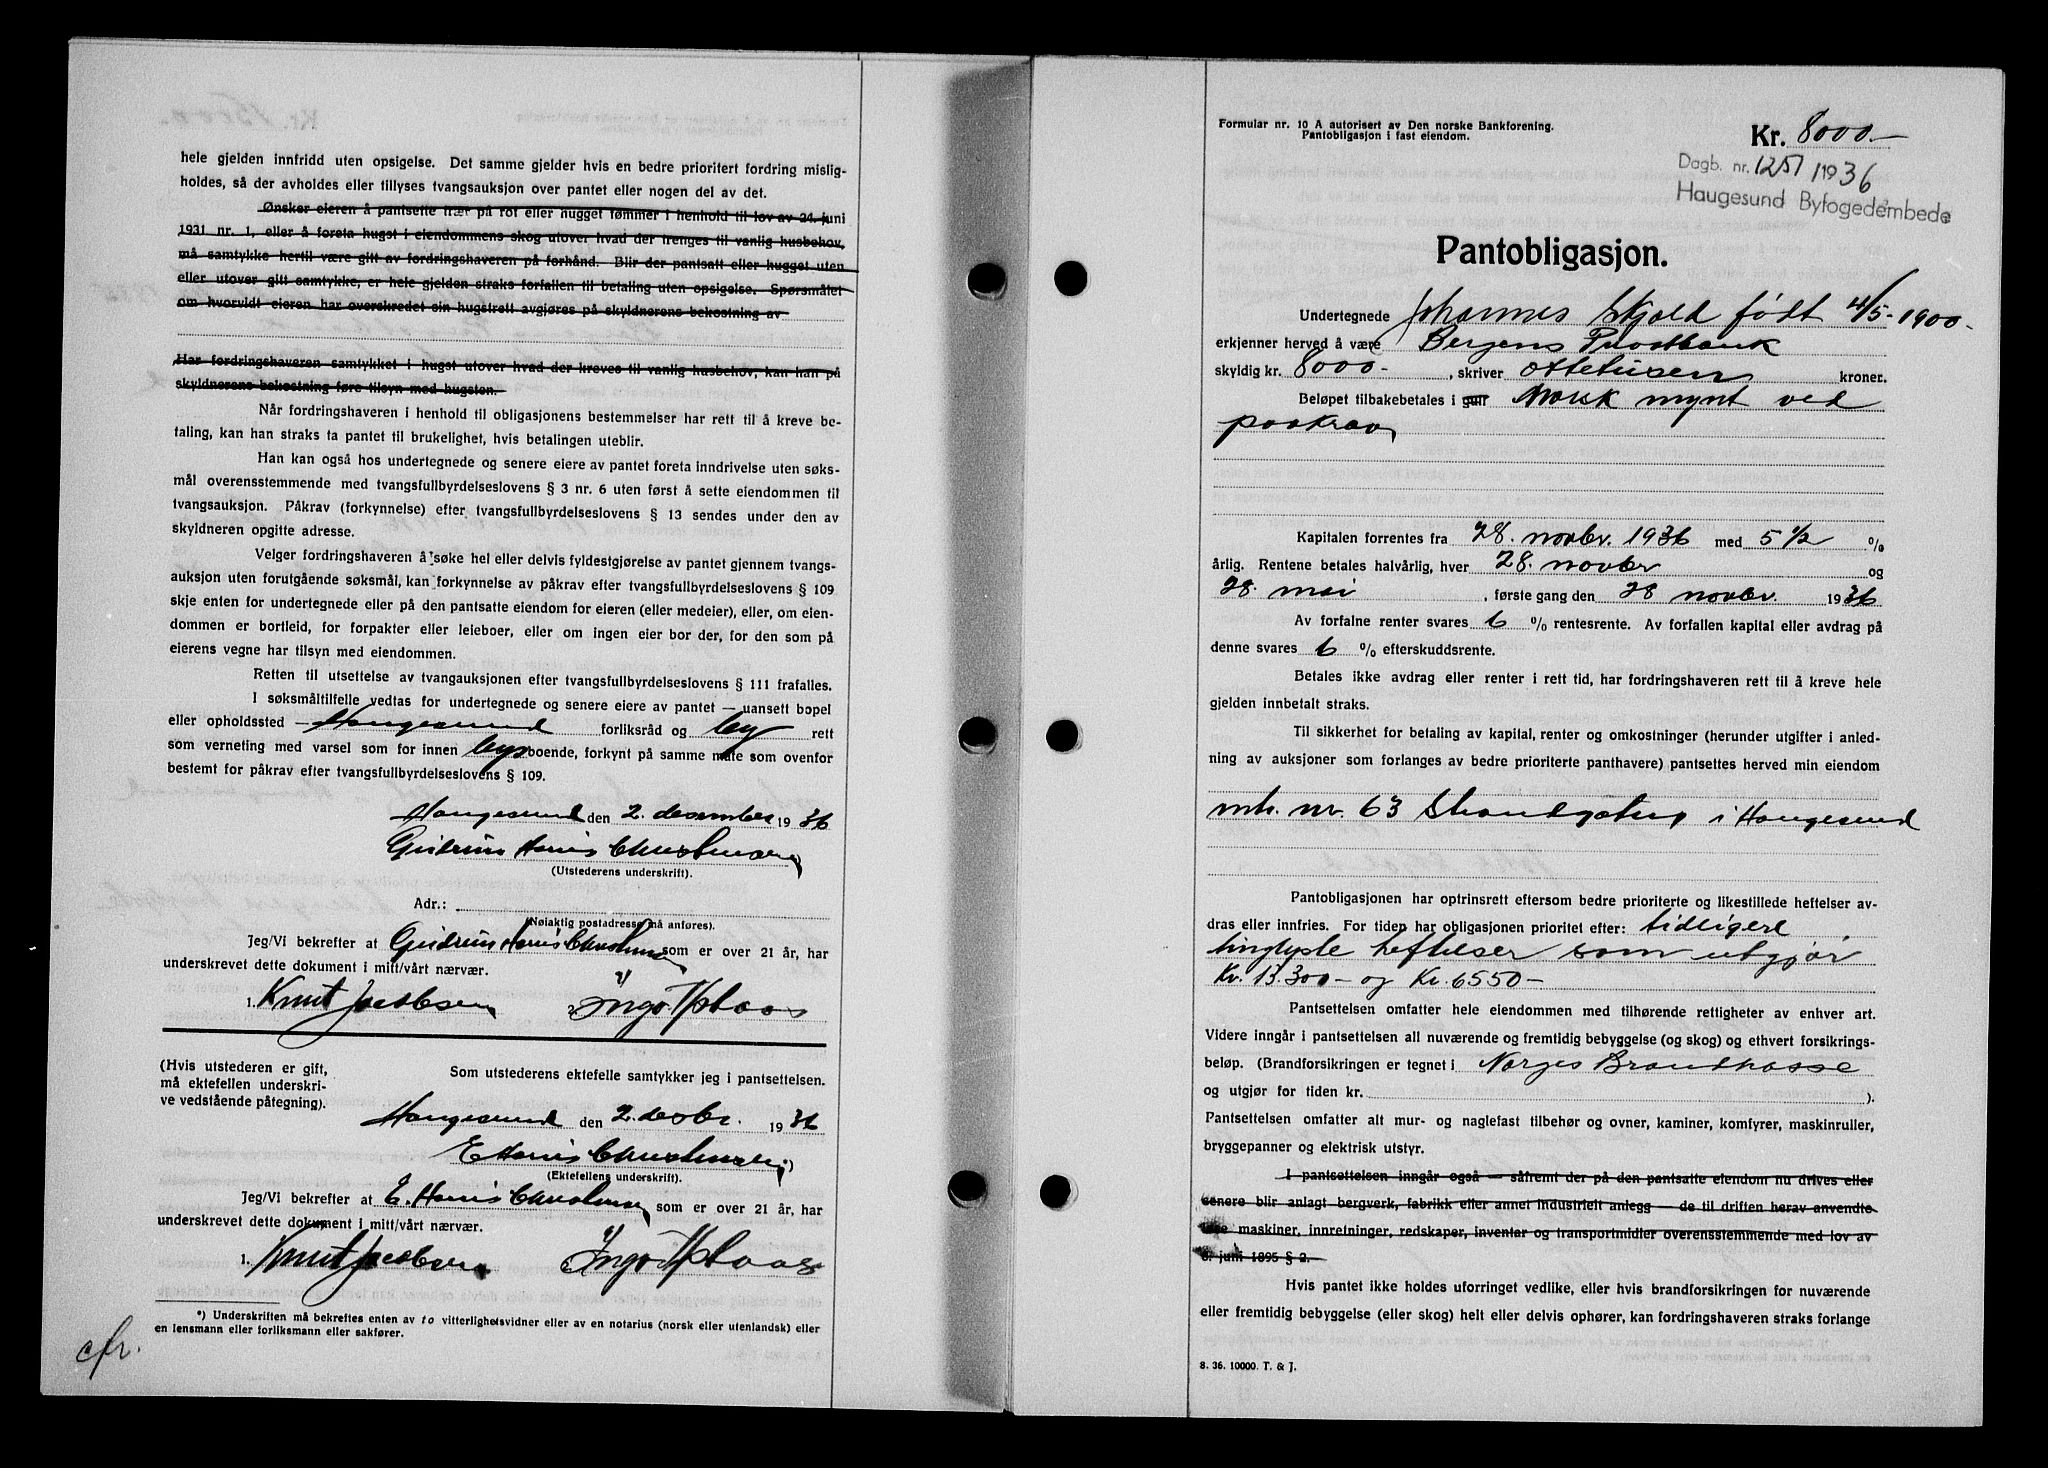 hele gjelden innfridd uten opsigelse. Det samme gjelder hvis en bedre prioritert fordring mislig-
holdes, så der avholdes eller tillyses tvangsauksjon over pantet eller nogen del av det.
Ønsker eieren å pantsette trær på rot eller hugget tømmer i henhold til lov av 24. juni
1931 nr. 1, eller å foreta hugst i eiendommens skog utover hvad der trenges til vanlig husbehov,
må samtykke hertil være gitt av fordringshaveren på forhånd. Blir der pantsatt eller hugget uten
eller utover gitt samtykke, er hele gjelden straks forfallen til betaling uten opsigelse. Spørsmålet
om hvorvidt eieren har overskredet sin hugstrett avgjøres på skyldnerens bekostning av
Har fordringshaveren samtykket i hugst utover hvad der kreves til vanlig husbehov, kan han på
skyldnerens bekostning føre tilsyn med hugsten.
Når fordringshaveren i henhold til obligasjonens bestemmelser har rett til å kreve be-
taling, kan han straks ta pantet til brukelighet, hvis betalingen uteblir.
Han kan også hos undertegnede og senere eiere av pantet foreta inndrivelse uten søks-
mål overensstemmende med tvangsfullbyrdelseslovens § 3 nr. 6 uten først å sette eiendommen til
tvangsauksjon. Påkrav (forkynnelse) efter tvangsfullbyrdelseslovens § 13 sendes under den av
skyldneren opgitte adresse.
Velger fordringshaveren å søke hel eller delvis fyldestgjørelse av pantet gjennem tvangs-
auksjon uten forutgående søksmål, kan forkynnelse av påkrav efter tvangsfullbyrdelseslovens § 109
skje enten for undertegnede eller på den pantsatte eiendom for eieren (eller medeier), eller, om eien-
dommen er bortleid, for forpakter eller leieboer, eller om ingen eier bor der, for den som på
eierens vegne har tilsyn med eiendommen.
Retten til utsettelse av tvangauksjonen efter tvangsfullbyrdelseslovens § 111 frafalles.
I søksmåltilfelle vedtas for undertegnede og senere eiere av pantet — uansett bopel
eller opholdssted — Haugesund forliksråd og by rett
som verneting med varsel som for innen bys boende, forkynt på samme måte som ovenfor
bestemt for påkrav efter tvangsfullbyrdelseslovens § 109.
Haugesund den 2. desember 1936
Gudrun Harris Christensen
(Utstederens underskrift).
Adr.:
(Nøiaktig postadresse må anføres).
Jeg/Vi bekrefter at Gudrun Harris Christensen som er over 21 år, har
underskrevet dette dokument i mitt/vårt nærvær.
1. Knut Jacobsen 2. Ingo
(Hvis utstederen er gift,
må ektefellen underskri-
ve vedstående påtegning).
Som utstederens ektefelle samtykker jeg i pantsettelsen.
Haugesund den 2. desbr. 1936
E Harris Christensen
(Ektefellens underskrift).
Jeg/Vi bekrefter at E. Harris Christensen som er over 21 år, har
underskrevet dette dokument i mitt/vårt nærvær.
1. Knut Jacobsen Ingo
*) Underskriften må bekreftes enten av to vitterlighetsvidner eller av en notarius (norsk eller utenlandsk) eller
en lensmann eller forliksmann eller sakfører.
cfr.
Formular nr. 10 A autorisert av Den norske Bankforening.
Pantobligasjon i fast eiendom.
Kr. 8000.-
Dagb. nr. 1251 1936
Haugesund Byfogedembede
Pantobligasjon.
Undertegnede Johannes Skjold født 4/5-1900-
erkjenner herved å være Bergens Privatbank
skyldig kr. 8000.-, skriver ottetusen kroner.
Beløpet tilbakebetales i gull Norsk mynt ved
paakrav
Kapitalen forrentes fra 28. novbr. 1936 med 5 1/2 %
årlig. Rentene betales halvårlig, hver 28. novbr og
28. mai, første gang den 28 novbr. 1936
Av forfalne renter svares 6 % rentesrente. Av forfallen kapital eller avdrag på
denne svares 6 % efterskuddsrente.
Betales ikke avdrag eller renter i rett tid, har fordringshaveren rett til å kreve hele
gjelden innbetalt straks.
Til sikkerhet for betaling av kapital, renter og omkostninger (herunder utgifter i anled-
ning av auksjoner som forlanges av bedre prioriterte panthavere) pantsettes herved min eiendom
mtr. nr. 63 Strandgaten i Haugesund
Pantobligasjonen har optrinsrett eftersom bedre prioriterte og likestillede heftelser av-
dras eller innfries. For tiden har obligasjonen prioritet efter: tidligere
tinglyste heftelser som utgjør
Kr. 13.300- og Kr. 6550-
Pantsettelsen omfatter hele eiendommen med tilhørende rettigheter av enhver art.
Videre inngår i pantsettelsen all nuværende og fremtidig bebyggelse (og skog) og ethvert forsikrings-
beløp. (Brandforsikringen er tegnet i Norges Brandkasse
og utgjør for tiden kr. ).
Pantsettelsen omfatter alt mur- og naglefast tilbehør og ovner, kaminer, komfyrer, maskinruller,
bryggepanner og elektrisk utstyr.
I pantsettelsen inngår også — såfremt der på den pantsatte eiendom nu drives eller
senere blir anlagt bergverk, fabrikk eller annet industrielt anlegg — de til driften herav anvendte
løse maskiner, innretninger, redskaper, inventar og transportmidler overensstemmende med lov av
8. juni 1895 § 2.
Hvis pantet ikke holdes uforringet vedlike, eller hvis brandforsikringen for nuværende
eller fremtidig bebyggelse (eller skog) helt eller delvis ophører, kan fordringshaveren straks forlange
8. 36. 10000. T. & J.